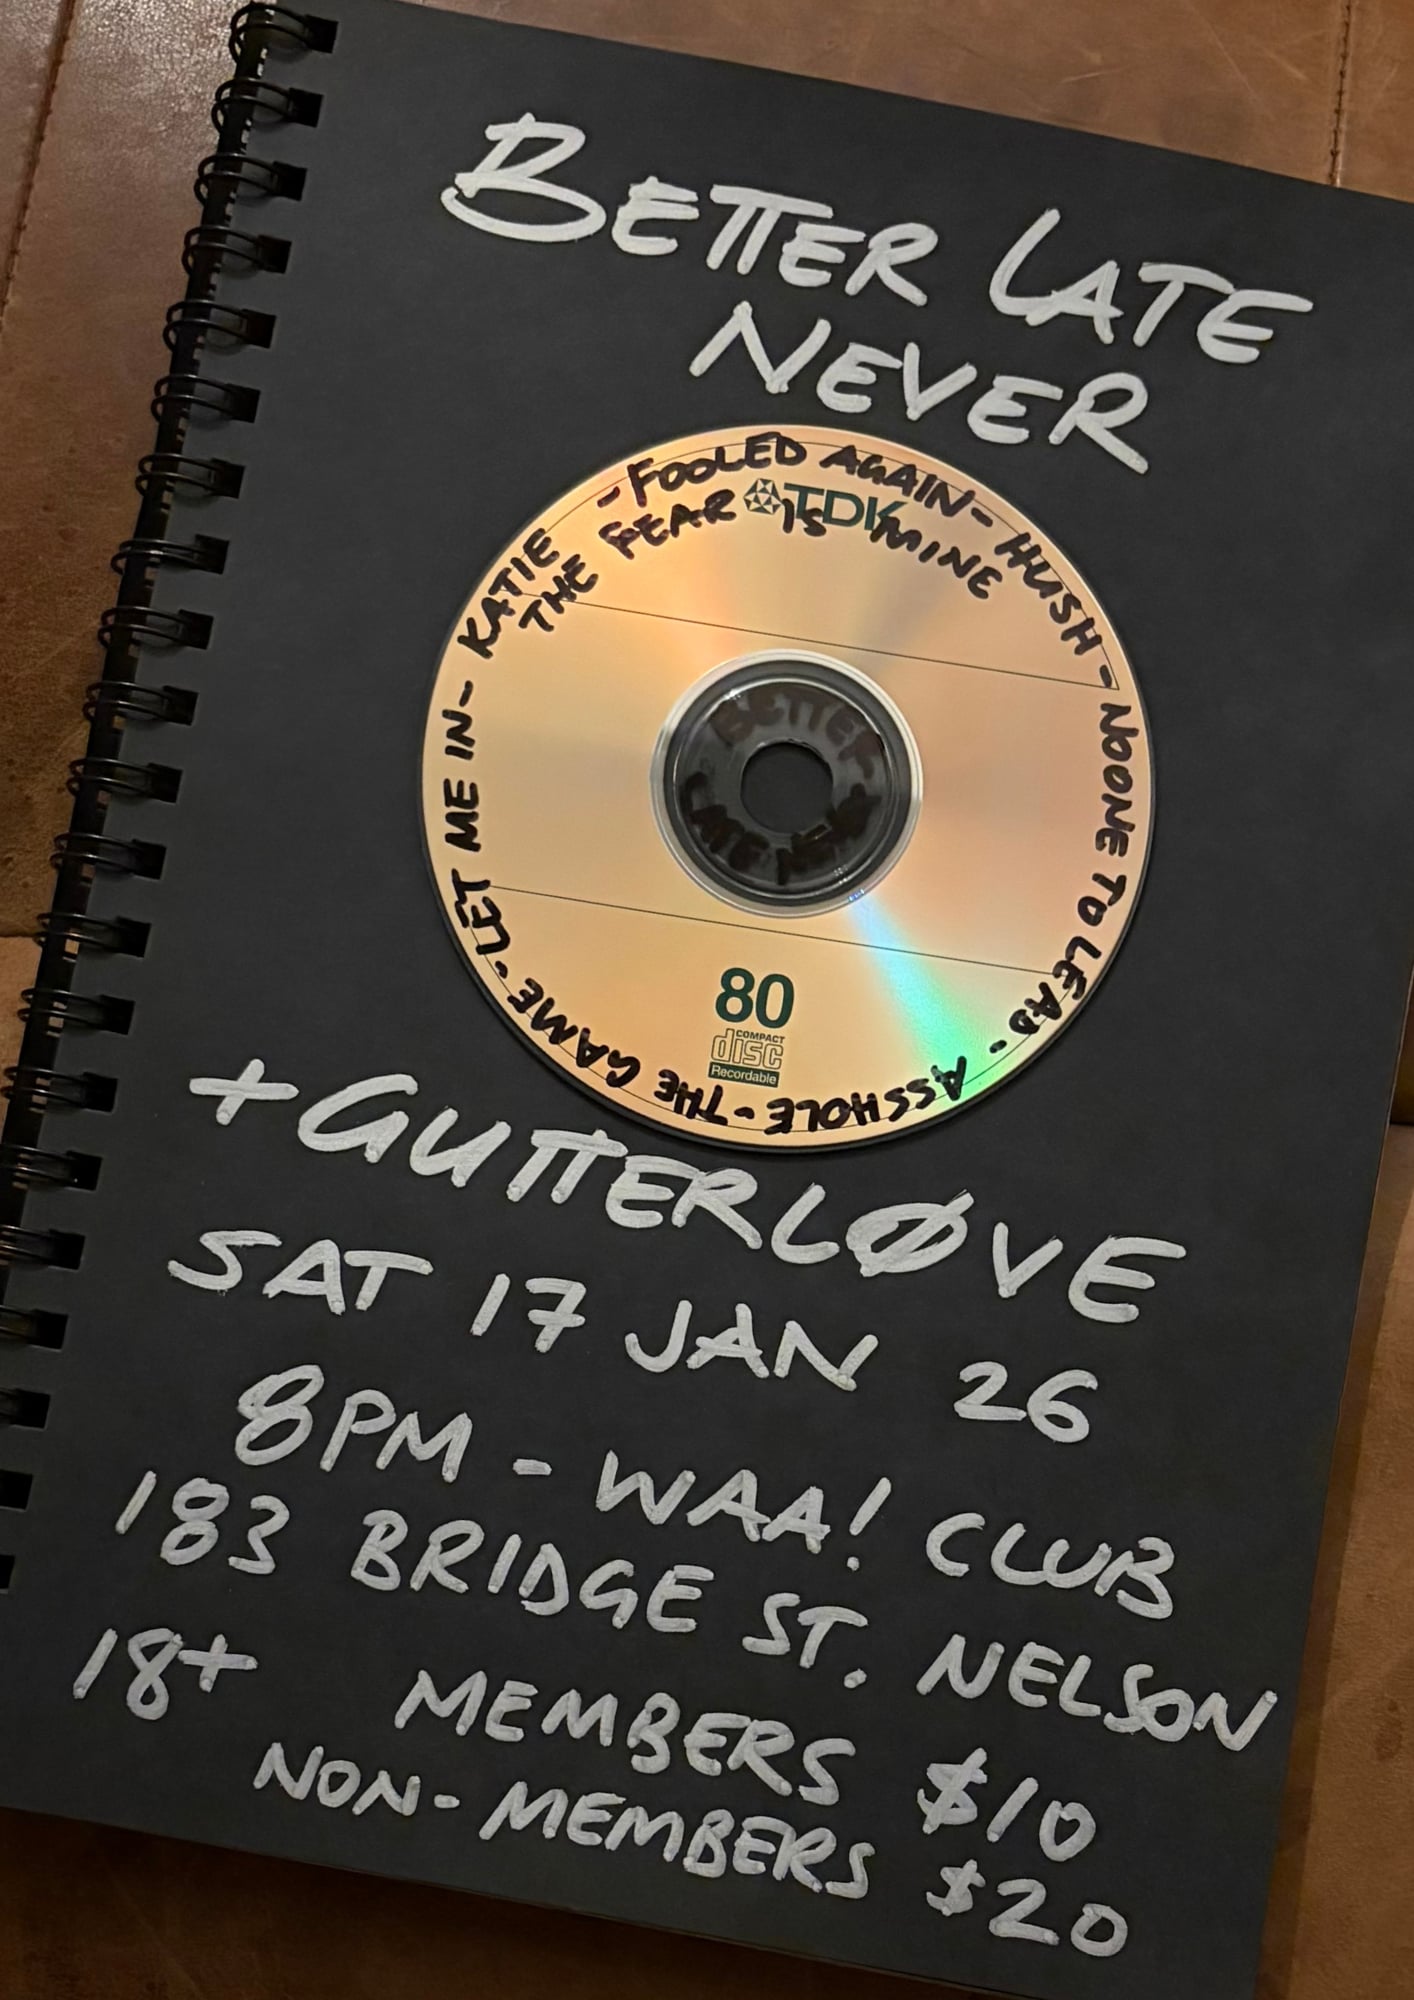 BETTER LATE
NEVER
- FOOLED AGAIN - HUSH - NOONE TO LEAD - ASSHOLE - THE GAME - LET ME IN - KATIE
THE FEAR IS MINE
TDK
BETTER
LATE NEVER
80
COMPACT
disc
Recordable
+ GUTTERLØVE
SAT 17 JAN 26
8PM - WAA! CLUB
183 BRIDGE ST. NELSON
18+ MEMBERS $10
NON-MEMBERS $20